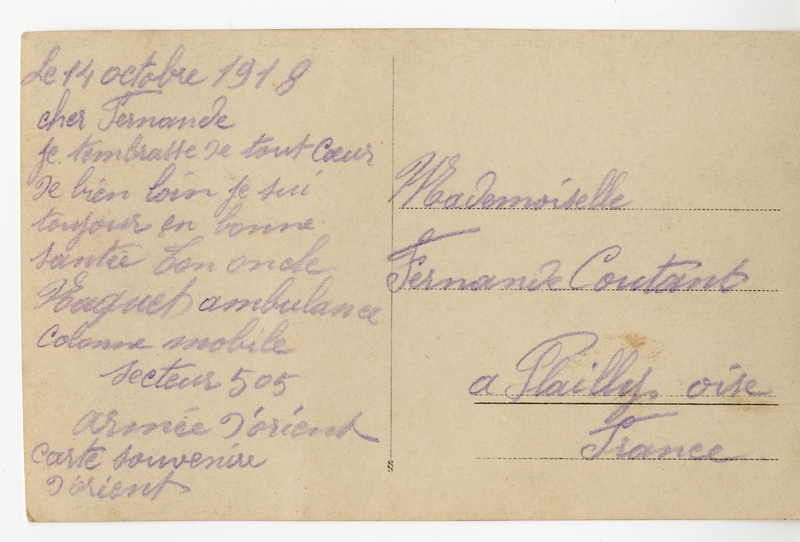 Le 14 octobre 1918
cher Fernande
je tembrasse de tout cœur
de bien loin je sui
toujour en bonne
santée ton oncle
Haguet ambulance
Colonne mobile
secteur 505
armée d'orient
carte souvenire
d'orient
Mademoiselle
Fernande Coutant
a Plailly oise
France